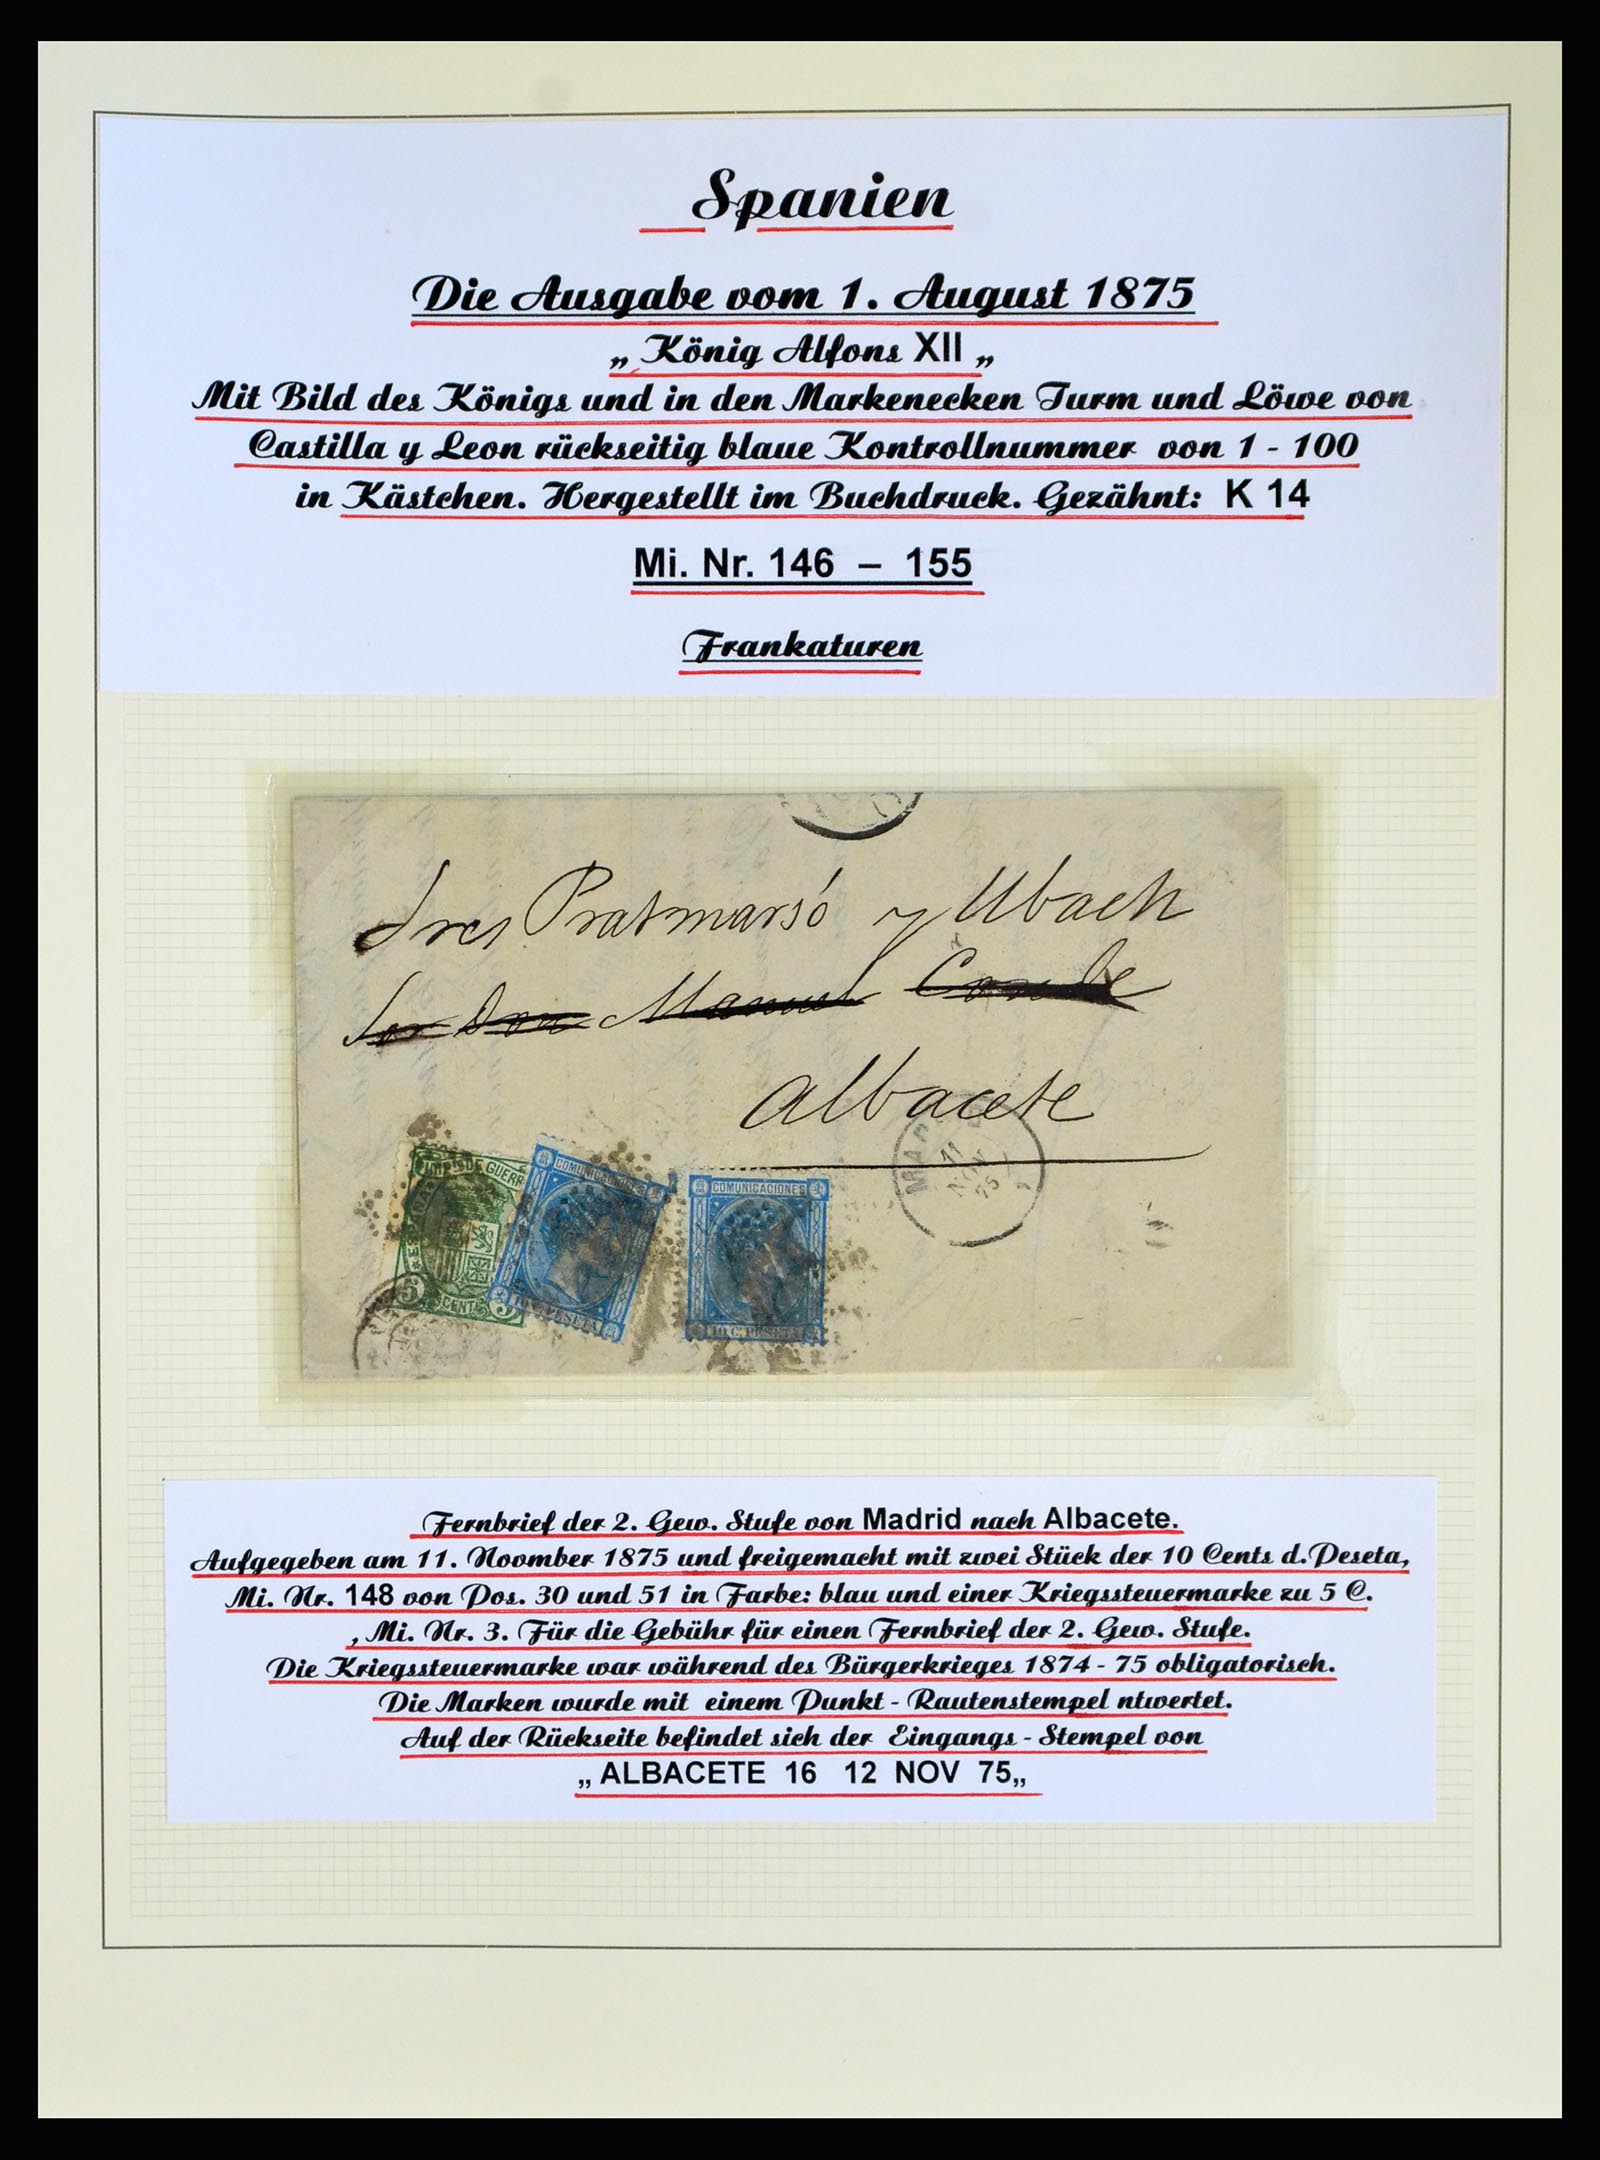 Spanien
Die Ausgabe vom 1. August 1875
„ König Alfons XII „
Mit Bild des Königs und in den Markenecken Turm und Löwe von
Castilla y Leon rückseitig blaue Kontrollnummer von 1 - 100
in Kästchen. Hergestellt im Buchdruck. Gezähnt: K 14
Mi. Nr. 146 – 155
Frankaturen
Sres Pratmarsó y Ubach
Don Manuel Conde
Albacete
MADRID
11 NOV 75
IMPTO DE GUERRA
5 CENT 5
COMUNICACIONES
10 C. PESETA
COMUNICACIONES
10 C. PESETA
Fernbrief der 2. Gew. Stufe von Madrid nach Albacete.
Aufgegeben am 11. Noovmber 1875 und freigemacht mit zwei Stück der 10 Cents d.Peseta,
Mi. Nr. 148 von Pos. 30 und 51 in Farbe: blau und einer Kriegssteuermarke zu 5 C.
, Mi. Nr. 3. Für die Gebühr für einen Fernbrief der 2. Gew. Stufe.
Die Kriegssteuermarke war während des Bürgerkrieges 1874 - 75 obligatorisch.
Die Marken wurde mit einem Punkt - Rautenstempel ntwertet.
Auf der Rückseite befindet sich der Eingangs - Stempel von
„ ALBACETE 16 12 NOV 75„